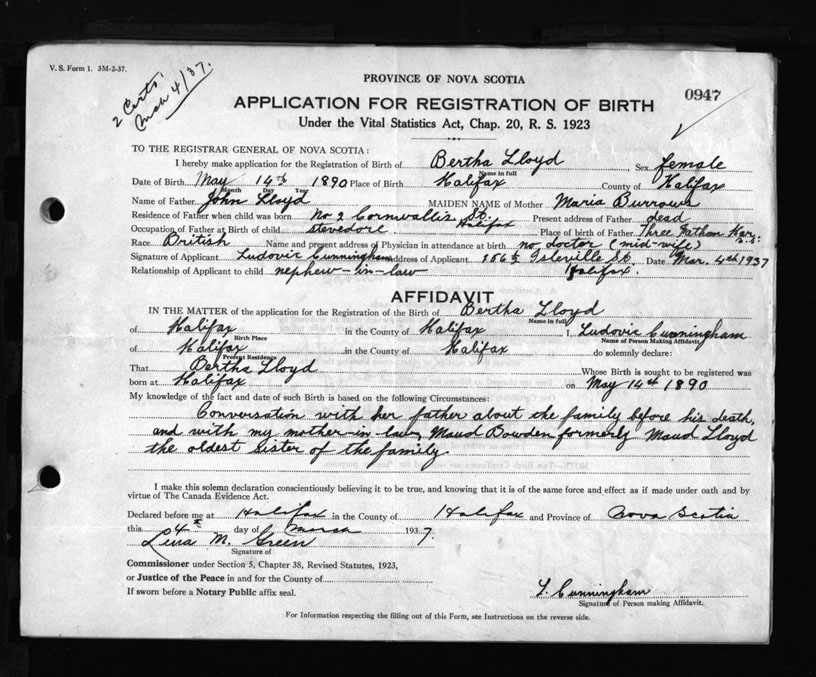 V. S. Form 1. 3M-2-37.
2 Certs.
Mch 4/37.
PROVINCE OF NOVA SCOTIA
0947
APPLICATION FOR REGISTRATION OF BIRTH
Under the Vital Statistics Act, Chap. 20, R. S. 1923
TO THE REGISTRAR GENERAL OF NOVA SCOTIA:
I hereby make application for the Registration of Birth of Bertha Lloyd, Sex female
Name in full
Date of Birth May 14th 1890 Place of Birth Halifax County of Halifax
Month Day Year
Name of Father John Lloyd MAIDEN NAME of Mother Maria Burrows
Residence of Father when child was born No 2 Cornwallis St. Halifax Present address of Father dead
Occupation of Father at Birth of child stevedore. Place of birth of Father Three Fathom Har. N.S.
Race British Name and present address of Physician in attendance at birth no doctor (mid-wife)
Signature of Applicant Ludovic Cunningham Address of Applicant 156½ Isleville St. Halifax. Date Mar. 4th 1937
Relationship of Applicant to child nephew-in-law
AFFIDAVIT
IN THE MATTER of the application for the Registration of the Birth of Bertha Lloyd
Name in full
of Halifax in the County of Halifax I, Ludovic Cunningham
Birth Place Name of Person Making Affidavit
of Halifax in the County of Halifax do solemnly declare:
Present Residence
That Bertha Lloyd Whose Birth is sought to be registered was
born at Halifax on May 14th 1890
My knowledge of the fact and date of such Birth is based on the following Circumstances:
Conversation with her father about the family before his death,
and with my mother-in-law, Maud Bowden formerly Maud Lloyd
the oldest sister of the family.
I make this solemn declaration conscientiously believing it to be true, and knowing that it is of the same force and effect as if made under oath and by
virtue of The Canada Evidence Act.
Declared before me at Halifax in the County of Halifax and Province of Nova Scotia
this 4th day of March 1937.
Lena M. Green
Signature of
Commissioner under Section 5, Chapter 38, Revised Statutes, 1923,
or Justice of the Peace in and for the County of
If sworn before a Notary Public affix seal.
L. Cunningham
Signature of Person making Affidavit.
For Information respecting the filling out of this Form, see Instructions on the reverse side.